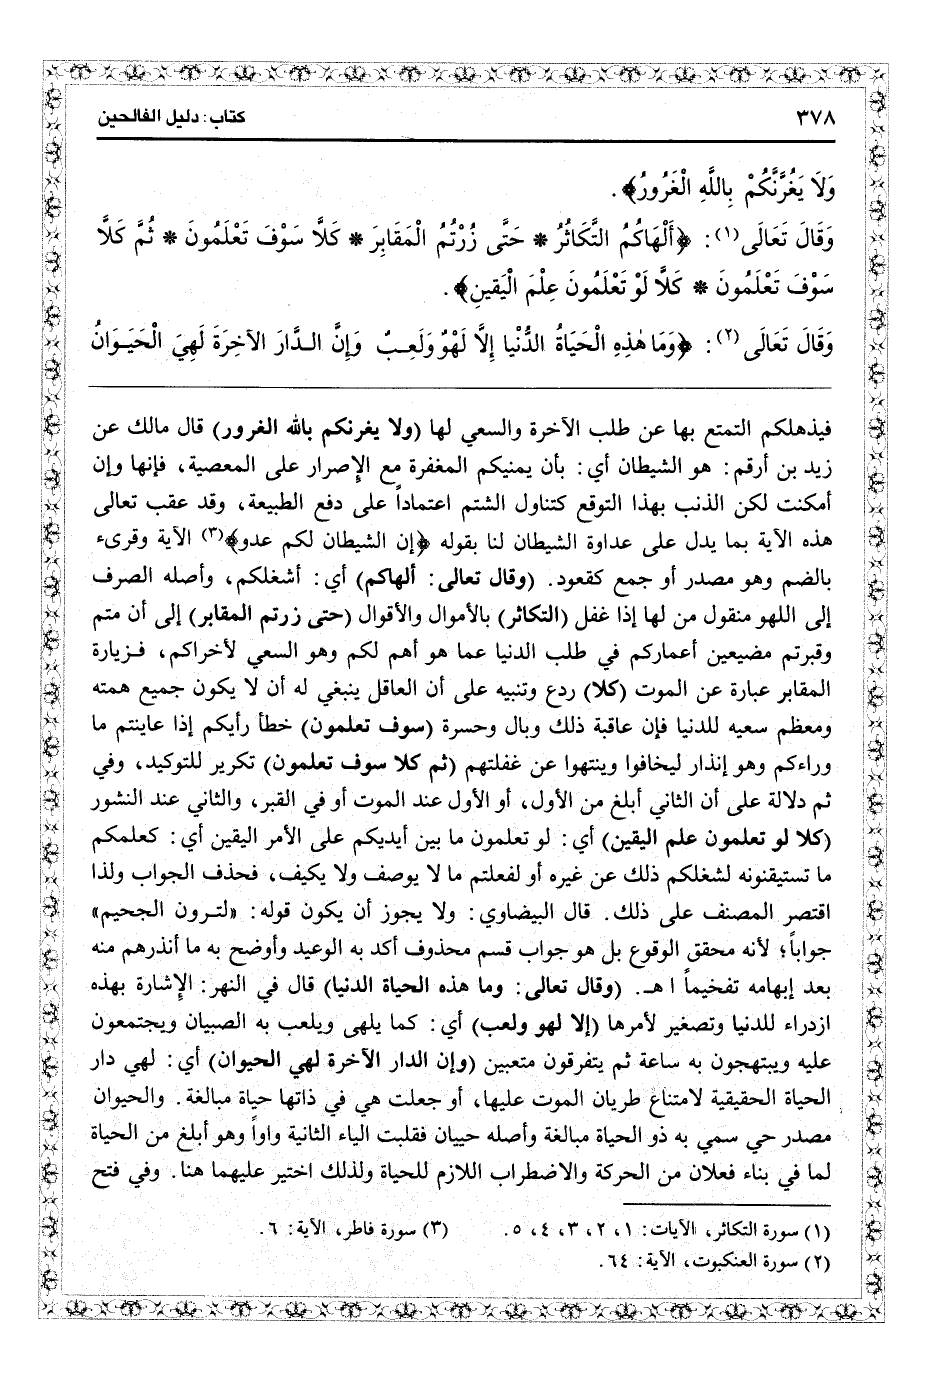 ٣٧٨ كتاب: دليل الفالحين
وَلَا يَغُرَّنَّكُمْ بِاللَّهِ الْغَرُورُ﴾.
وَقَالَ تَعَالَى(١): ﴿أَلْهَاكُمُ التَّكَاثُرُ * حَتَّى زُرْتُمُ الْمَقَابِرَ * كَلَّا سَوْفَ تَعْلَمُونَ * ثُمَّ كَلَّا
سَوْفَ تَعْلَمُونَ * كَلَّا لَوْ تَعْلَمُونَ عِلْمَ الْيَقِينِ﴾.
وَقَالَ تَعَالَى(٢): ﴿وَمَا هٰذِهِ الْحَيَاةُ الدُّنْيَا إِلَّا لَهْوٌ وَلَعِبٌ وَإِنَّ الدَّارَ الآخِرَةَ لَهِيَ الْحَيَوَانُ
فيذهلكم التمتع بها عن طلب الآخرة والسعي لها (ولا يغرنكم بالله الغرور) قال مالك عن
زيد بن أرقم: هو الشيطان أي: بأن يمنيكم المغفرة مع الإصرار على المعصية، فإنها وإن
أمكنت لكن الذنب بهذا التوقع كتناول الشتم اعتماداً على دفع الطبيعة، وقد عقب تعالى
هذه الآية بما يدل على عداوة الشيطان لنا بقوله ﴿إن الشيطان لكم عدو﴾(٣) الآية وقرىء
بالضم وهو مصدر أو جمع كقعود. (وقال تعالى: ألهاكم) أي: أشغلكم، وأصله الصرف
إلى اللهو منقول من لها إذا غفل (التكاثر) بالأموال والأقوال (حتى زرتم المقابر) إلى أن متم
وقبرتم مضيعين أعماركم في طلب الدنيا عما هو أهم لكم وهو السعي لأخراكم، فزيارة
المقابر عبارة عن الموت (كلا) ردع وتنبيه على أن العاقل ينبغي له أن لا يكون جميع همته
ومعظم سعيه للدنيا فإن عاقبة ذلك وبال وحسرة (سوف تعلمون) خطأ رأيكم إذا عاينتم ما
وراءكم وهو إنذار ليخافوا وينتهوا عن غفلتهم (ثم كلا سوف تعلمون) تكرير للتوكيد، وفي
ثم دلالة على أن الثاني أبلغ من الأول، أو الأول عند الموت أو في القبر، والثاني عند النشور
(كلا لو تعلمون علم اليقين) أي: لو تعلمون ما بين أيديكم على الأمر اليقين أي: كعلمكم
ما تستيقنونه لشغلكم ذلك عن غيره أو لفعلتم ما لا يوصف ولا يكيف، فحذف الجواب ولذا
اقتصر المصنف على ذلك. قال البيضاوي: ولا يجوز أن يكون قوله: «لترون الجحيم»
جواباً؛ لأنه محقق الوقوع بل هو جواب قسم محذوف أكد به الوعيد وأوضح به ما أنذرهم منه
بعد إبهامه تفخيماً اهـ. (وقال تعالى: وما هذه الحياة الدنيا) قال في النهر: الإشارة بهذه
ازدراء للدنيا وتصغير لأمرها (إلا لهو ولعب) أي: كما يلهى ويلعب به الصبيان ويجتمعون
عليه ويبتهجون به ساعة ثم يتفرقون متعبين (وإن الدار الآخرة لهي الحيوان) أي: لهي دار
الحياة الحقيقية لامتناع طريان الموت عليها، أو جعلت هي في ذاتها حياة مبالغة. والحيوان
مصدر حي سمي به ذو الحياة مبالغة وأصله حييان فقلبت الياء الثانية واواً وهو أبلغ من الحياة
لما في بناء فعلان من الحركة والاضطراب اللازم للحياة ولذلك اختير عليهما هنا. وفي فتح
(١) سورة التكاثر، الآيات: ١، ٢، ٣، ٤، ٥. (٣) سورة فاطر، الآية: ٦.
(٢) سورة العنكبوت، الآية: ٦٤.